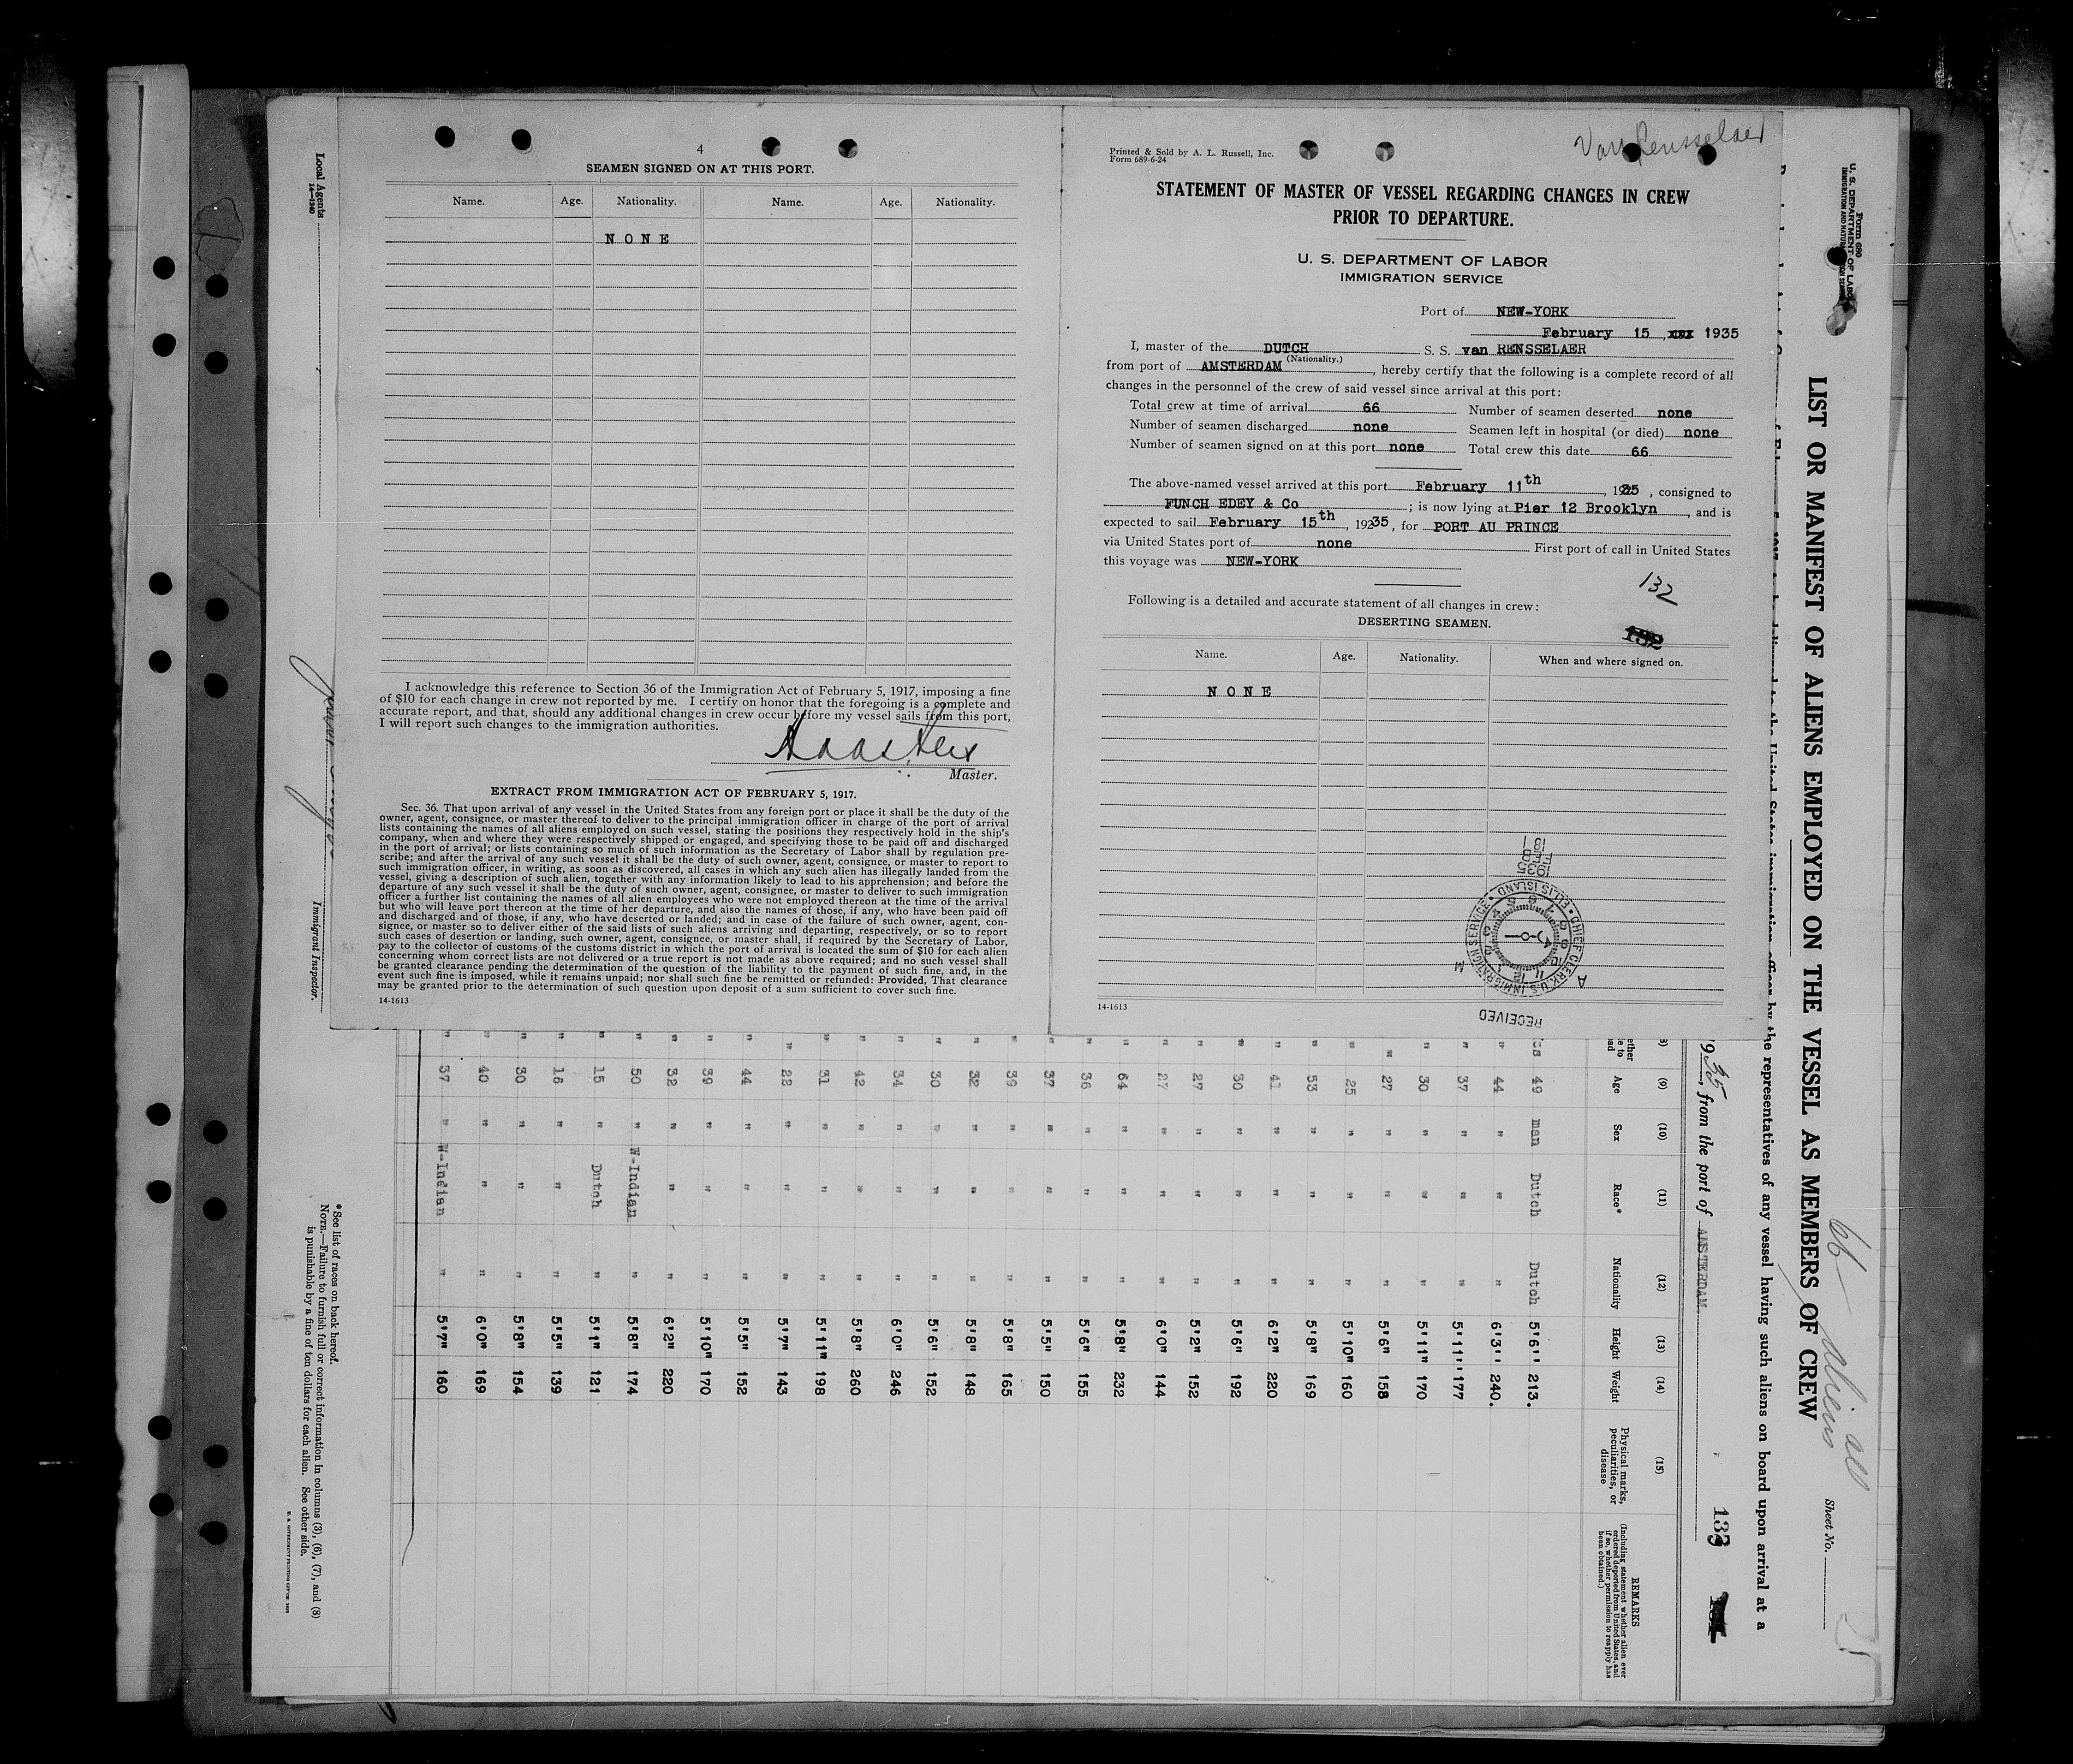 4
SEAMEN SIGNED ON AT THIS PORT.
Name. Age. Nationality. Name. Age. Nationality.
NONE
I acknowledge this reference to Section 36 of the Immigration Act of February 5, 1917, imposing a fine
of $10 for each change in crew not reported by me. I certify on honor that the foregoing is a complete and
accurate report, and that, should any additional changes in crew occur before my vessel sails from this port,
I will report such changes to the immigration authorities.
Master.
EXTRACT FROM IMMIGRATION ACT OF FEBRUARY 5, 1917.
Sec. 36. That upon arrival of any vessel in the United States from any foreign port or place it shall be the duty of the
owner, agent, consignee, or master thereof to deliver to the principal immigration officer in charge of the port of arrival
lists containing the names of all aliens employed on such vessel, stating the positions they respectively hold in the ship's
company, when and where they were respectively shipped or engaged, and specifying those to be paid off and discharged
in the port of arrival; or lists containing so much of such information as the Secretary of Labor shall by regulation pre-
scribe; and after the arrival of any such vessel it shall be the duty of such owner, agent, consignee, or master to report to
such immigration officer, in writing, as soon as discovered, all cases in which any such alien has illegally landed from the
vessel, giving a description of such alien, together with any information likely to lead to his apprehension; and before the
departure of any such vessel it shall be the duty of such owner, agent, consignee, or master to deliver to such immigration
officer a further list containing the names of all alien employees who were not employed thereon at the time of the arrival
but who will leave port thereon at the time of her departure, and also the names of those, if any, who have been paid off
and discharged and of those, if any, who have deserted or landed; and in case of the failure of such owner, agent, con-
signee, or master so to deliver either of the said lists of such aliens arriving and departing, respectively, or so to report
such cases of desertion or landing, such owner, agent, consignee, or master shall, if required by the Secretary of Labor,
pay to the collector of customs of the customs district in which the port of arrival is located the sum of $10 for each alien
concerning whom correct lists are not delivered or a true report is not made as above required; and no such vessel shall
be granted clearance pending the determination of the question of the liability to the payment of such fine, and, in the
event such fine is imposed, while it remains unpaid; nor shall such fine be remitted or refunded: Provided, That clearance
may be granted prior to the determination of such question upon deposit of a sum sufficient to cover such fine.
14-1613
Van Rensselaer
Printed & Sold by A. L. Russell, Inc.
Form 689-6-24
STATEMENT OF MASTER OF VESSEL REGARDING CHANGES IN CREW
PRIOR TO DEPARTURE.
U. S. DEPARTMENT OF LABOR
IMMIGRATION SERVICE
Port of NEW-YORK
February 15, 1935
I, master of the DUTCH S. S. van RENSSELAER
(Nationality.)
from port of AMSTERDAM, hereby certify that the following is a complete record of all
changes in the personnel of the crew of said vessel since arrival at this port:
Total crew at time of arrival 66 Number of seamen deserted none
Number of seamen discharged none Seamen left in hospital (or died) none
Number of seamen signed on at this port none Total crew this date 66
The above-named vessel arrived at this port February 11th, 1935, consigned to
FUNCH EDEY & Co; is now lying at Pier 12 Brooklyn, and is
expected to sail February 15th, 1935, for PORT AU PRINCE
via United States port of none First port of call in United States
this voyage was NEW-YORK
132
Following is a detailed and accurate statement of all changes in crew:
DESERTING SEAMEN.
132
Name. Age. Nationality. When and where signed on.
NONE
14-1613
RECEIVED
CHIEF CLERK U.S. IMMIGRATION SERVICE • ELLIS ISLAND
A M
1935 FEB 15
Form 680
U. S. DEPARTMENT OF LABOR
LIST OR MANIFEST OF ALIENS EMPLOYED ON THE VESSEL AS MEMBERS OF CREW
66 aliens all
Sheet No.
the representatives of any vessel having such aliens on board upon arrival at a
1935, from the port of AMSTERDAM.
133
(9) (10) (11) (12) (13) (14) (15)
Age Sex Race* Nationality Height Weight Physical marks, peculiarities, or disease
REMARKS
(Including statement whether alien ever
ordered deported from United States, and
if so, whether permission to reapply has
been obtained.)
49 man Dutch Dutch 5'6'' 213.
44 " " " 6'3'' 240.
37 " " " 5'11'' 177
30 " " " 5'11" 170
27 " " " 5'6" 158
25 " " " 5'10" 160
53 " " " 5'8" 169
41 " " " 6'2" 220
30 " " " 5'6" 192
27 " " " 5'2" 152
27 " " " 6'0" 144
64 " " " 5'8" 232
36 " " " 5'6" 155
37 " " " 5'5" 150
39 " " " 5'8" 165
32 " " " 5'8" 148
30 " " " 5'6" 152
34 " " " 6'0" 246
42 " " " 5'8" 260
31 " " " 5'11" 198
22 " " " 5'7" 143
44 " " " 5'5" 152
39 " " " 5'10" 170
32 " " " 6'2" 220
50 " W-Indian " 5'8" 174
15 " Dutch " 5'1" 121
16 " " " 5'5" 139
30 " " " 5'8" 154
40 " " " 6'0" 169
37 " W-Indian " 5'7" 160
*See list of races on back hereof.
NOTE.—Failure to furnish full or correct information in columns (3), (6), (7), and (8)
is punishable by a fine of ten dollars for each alien. See other side.
Local Agents
14-1340
Immigrant Inspector.